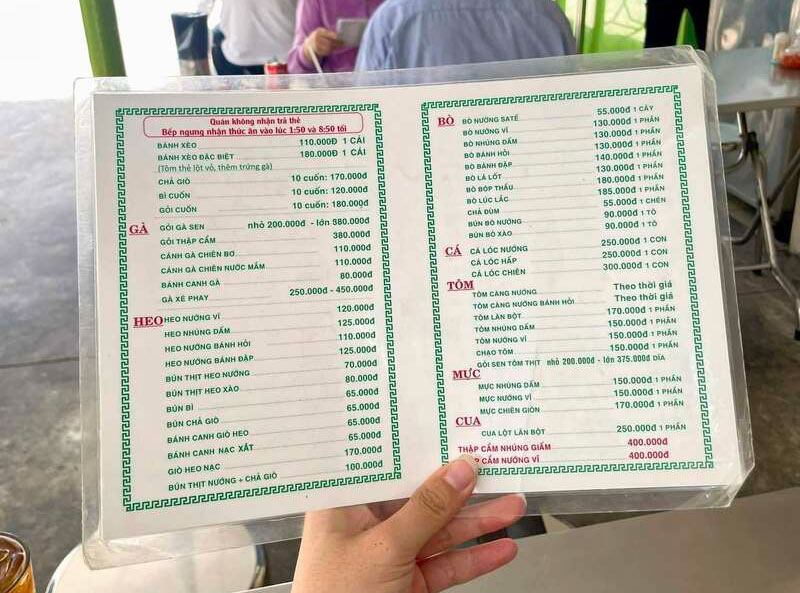 Quán không nhận trả thẻ
Bếp ngưng nhận thức ăn vào lúc 1:50 và 8:50 tối
BÁNH XÈO 110.000Đ 1 CÁI
BÁNH XÈO ĐẶC BIỆT 180.000Đ 1 CÁI
(Tôm thẻ lột vỏ, thêm trứng gà)
CHẢ GIÒ 10 cuốn: 170.000đ
BÌ CUỐN 10 cuốn: 120.000đ
GỎI CUỐN 10 cuốn: 180.000đ
GÀ GỎI GÀ SEN nhỏ 200.000đ - lớn 380.000đ
GỎI THẬP CẨM 380.000đ
CÁNH GÀ CHIÊN BƠ 110.000đ
CÁNH GÀ CHIÊN NƯỚC MẮM 110.000đ
BÁNH CANH GÀ 80.000đ
GÀ XÉ PHAY 250.000đ - 450.000đ
HEO HEO NƯỚNG VĨ 120.000đ
HEO NHÚNG DẤM 125.000đ
HEO NƯỚNG BÁNH HỎI 110.000đ
HEO NƯỚNG BÁNH ĐẬP 125.000đ
BÚN THỊT HEO NƯỚNG 70.000đ
BÚN THỊT HEO XÀO 80.000đ
BÚN BÌ 65.000đ
BÚN CHẢ GIÒ 65.000đ
BÁNH CANH GIÒ HEO 65.000đ
BÁNH CANH NẠC XẮT 65.000đ
GIÒ HEO NẠC 170.000đ
BÚN THỊT NƯỚNG + CHẢ GIÒ 100.000đ
BÒ BÒ NƯỚNG SATẾ 55.000đ 1 CÂY
BÒ NƯỚNG VĨ 130.000đ 1 PHẦN
BÒ NHÚNG DẤM 130.000đ 1 PHẦN
BÒ BÁNH HỎI 130.000đ 1 PHẦN
BÒ BÁNH ĐẬP 140.000đ 1 PHẦN
BÒ LÁ LỐT 130.000đ 1 PHẦN
BÒ BÓP THẤU 180.000đ 1 PHẦN
BÒ LÚC LẮC 185.000đ 1 PHẦN
CHẢ ĐÙM 55.000đ 1 CHÉN
BÚN BÒ NƯỚNG 90.000đ 1 TÔ
BÚN BÒ XÀO 90.000đ 1 TÔ
CÁ CÁ LÓC NƯỚNG 250.000đ 1 CON
CÁ LÓC HẤP 250.000đ 1 CON
CÁ LÓC CHIÊN 300.000đ 1 CON
TÔM
TÔM CÀNG NƯỚNG Theo thời giá
TÔM CÀNG NƯỚNG BÁNH HỎI Theo thời giá
TÔM LĂN BỘT 170.000đ 1 PHẦN
TÔM NHÚNG DẤM 150.000đ 1 PHẦN
TÔM NƯỚNG VĨ 150.000đ 1 PHẦN
CHẠO TÔM 150.000đ 1 PHẦN
GỎI SEN TÔM THỊT nhỏ 200.000đ - lớn 375.000đ DĨA
MỰC
MỰC NHÚNG DẤM 150.000đ 1 PHẦN
MỰC NƯỚNG VĨ 150.000đ 1 PHẦN
MỰC CHIÊN GIÒN 170.000đ 1 PHẦN
CUA
CUA LỘT LĂN BỘT 250.000đ 1 PHẦN
THẬP CẨM NHÚNG GIẤM 400.000đ
CẨM NƯỚNG VĨ 400.000đ